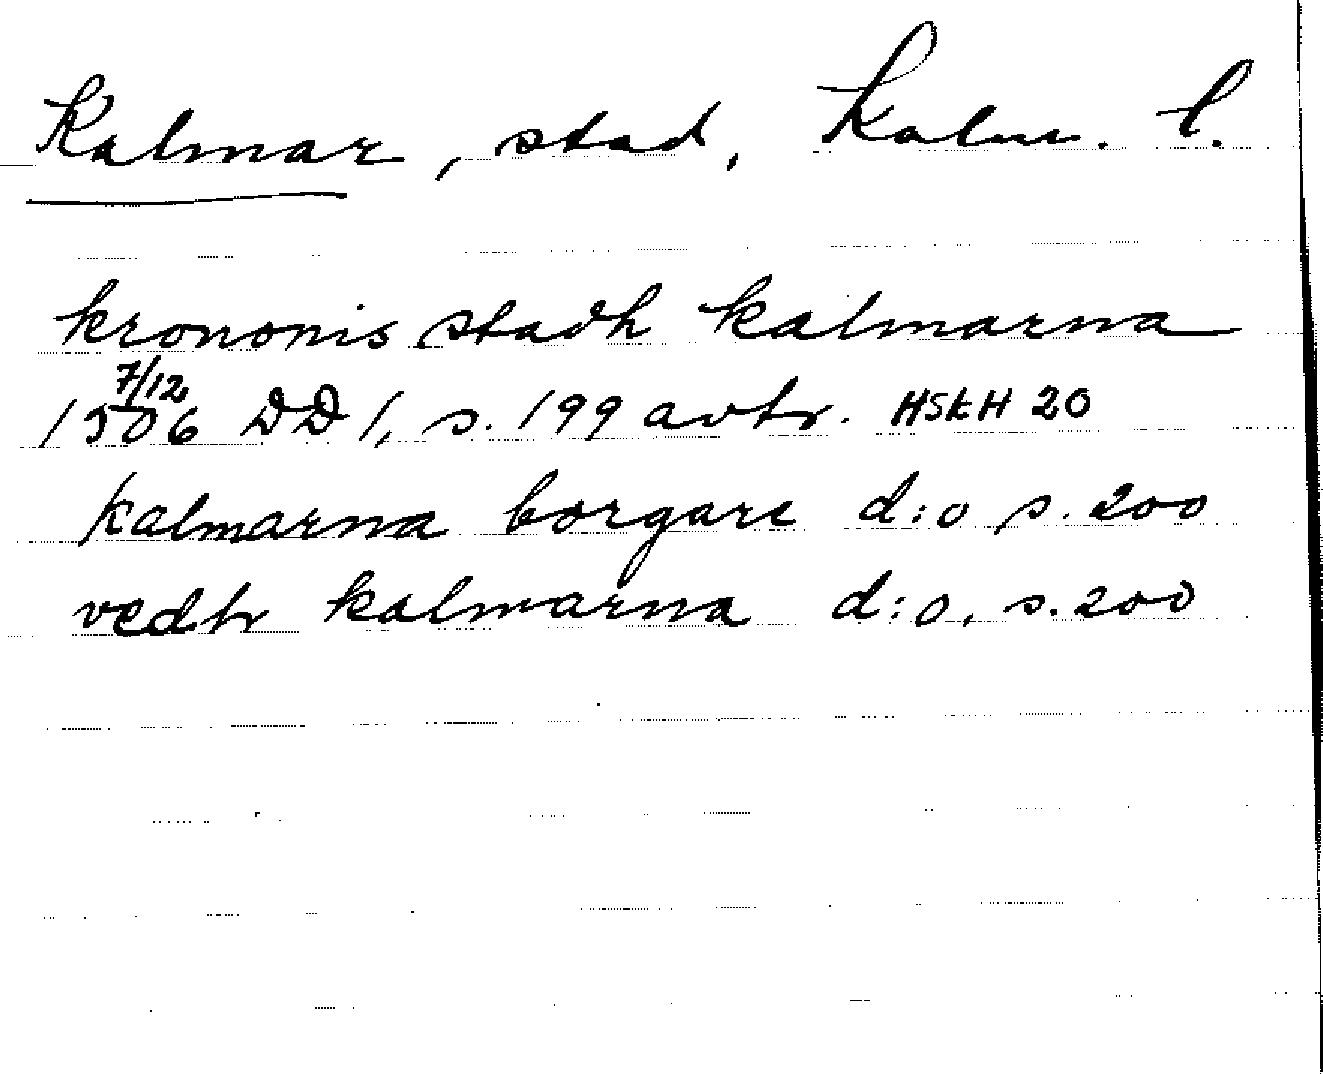 Kalmar, stad, Kalm. l.
krononis stadh kalmarna
7/12
1506 DD 1, s. 199 avtr. HSkH 20
kalmarna borgare d:o s. 200
vedh kalmarna d:o, s. 200